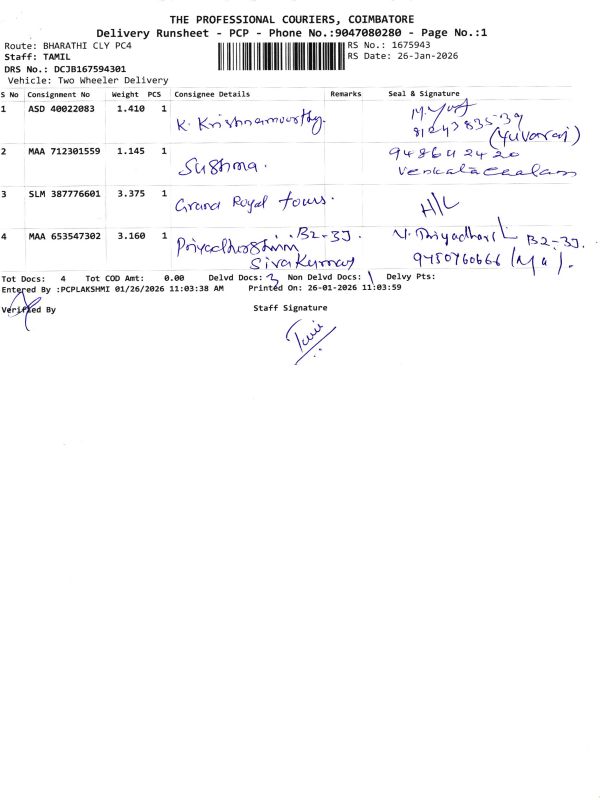 THE PROFESSIONAL COURIERS, COIMBATORE
Delivery Runsheet - PCP - Phone No.:9047080280 - Page No.:1
Route: BHARATHI CLY PC4 RS No.: 1675943
Staff: TAMIL RS Date: 26-Jan-2026
DRS No.: DCJB167594301
Vehicle: Two Wheeler Delivery
S No Consignment No Weight PCS Consignee Details Remarks Seal & Signature
1 ASD 40022083 1.410 1 K. Krishnamoorthy.
(Yuvaraj)
2 MAA 712301559 1.145 1 Sushma. 9486424 20
Venkatachalam
3 SLM 387776601 3.375 1 Grand Royal tours. H/L
4 MAA 653547302 3.160 1 Priyadharshini B2-3J. B2-3J.
Sivakumar
Tot Docs: 4 Tot COD Amt: 0.00 Delvd Docs: 3 Non Delvd Docs: 1 Delvy Pts:
Entered By :PCPLAKSHMI 01/26/2026 11:03:38 AM Printed On: 26-01-2026 11:03:59
Verified By Staff Signature